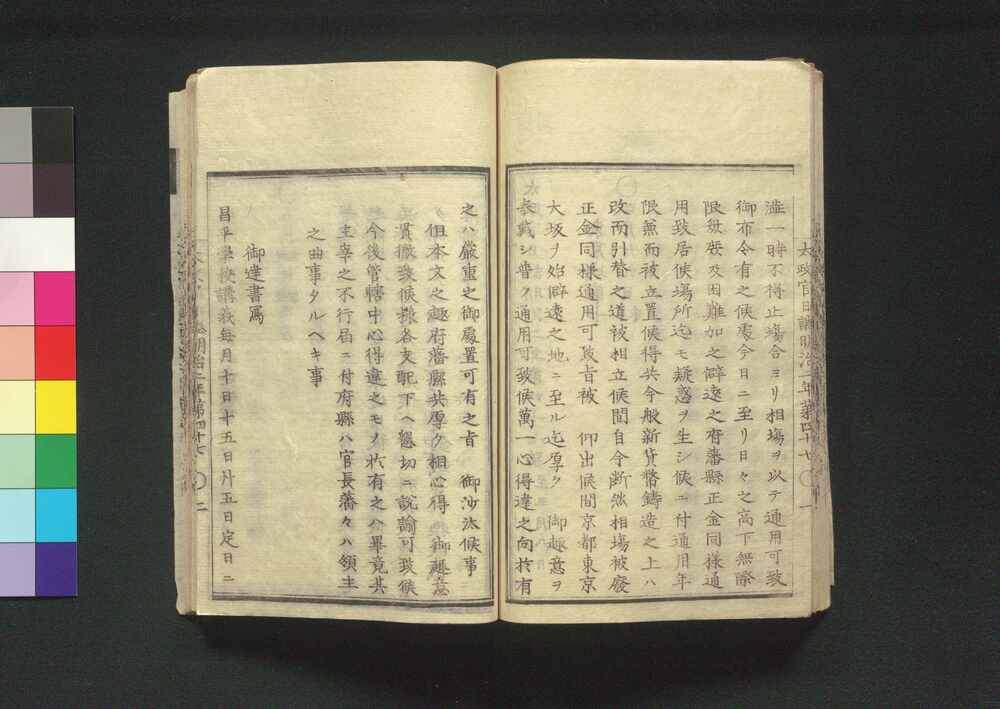 澁一時不得止塲合ヨリ相塲ヲ以テ通用可致
御布令有之候處今日ニ至リ日々之高下無際
限發疑及困難加之僻遠之府藩縣正金同樣通
用致居候塲所迄モ疑惑ヲ生シ候ニ付通用年
限無而被立置候得共今般新貨幣鑄造之上ハ
改而引替之道被相立候間自今斷然相塲被廢
正金同樣通用可致旨被 仰出候間京都東京
大坂ヲ始僻遠之地ニ至ル迄厚ク 御趣意ヲ
奉戴シ普ク通用可致候萬一心得違之向於有
太政官日誌明治二年第四十七 〇 一
之ハ嚴重之御處置可有之旨 御沙汰候事
但本文之趣府藩縣共厚ク相心得 御趣意
貫徹致候樣各支配下ヘ懇切ニ說諭可致候
今後管轄中心得違之モノ於有之ハ畢竟其
主宰之不行屆ニ付府縣ハ官長藩々ハ領主
之曲事タルヘキ事
御達書寫
昌平學校講義每月十日十五日廾五日定日ニ
明治二年第四十七 〇 二